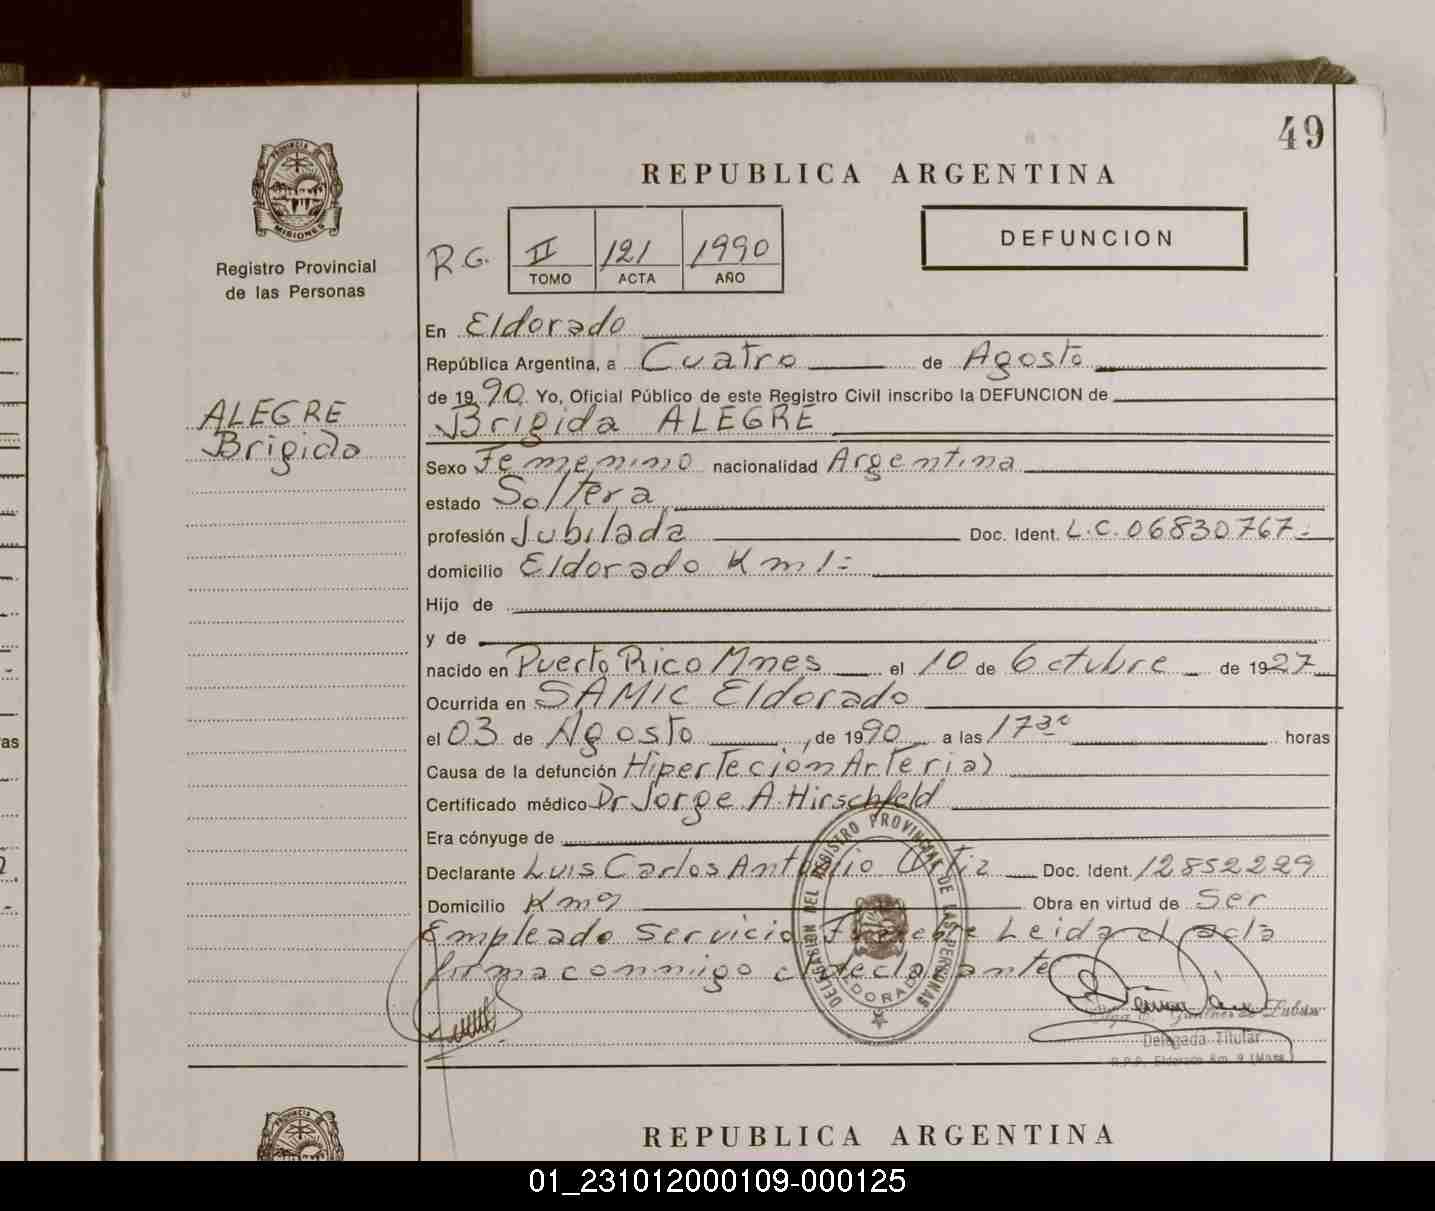 49
PROVINCIA DE
MISIONES
Registro Provincial
de las Personas
REPUBLICA ARGENTINA
R.G. II 121 1990
TOMO ACTA AÑO
DEFUNCION
ALEGRE
Brigida
En Eldorado
República Argentina, a Cuatro de Agosto
de 1990. Yo, Oficial Público de este Registro Civil inscribo la DEFUNCION de
Brigida ALEGRE
Sexo Femenino nacionalidad Argentina
estado Soltera
profesión Jubilada Doc. Ident. L.C. 06830767-
domicilio Eldorado Km 1=
Hijo de
y de
nacido en Puerto Rico Mnes el 10 de Octubre de 1927
Ocurrida en SAMIC Eldorado
el 03 de Agosto, de 1990 a las 17 horas
Causa de la defunción Hipertecion Arterial
Certificado médico Dr Jorge A. Hirschfeld
Era cónyuge de
Declarante Luis Carlos Antonio Ortiz Doc. Ident. 12852229
Domicilio Km 9 Obra en virtud de Ser
Empleado Servicio Funebre Leida el acta
firma conmigo el declarante
DELEGACION DEL REGISTRO PROVINCIAL DE LAS PERSONAS
ELDORADO
Delegada Titular
R.P.P. Eldorado Km. 9 (Mnes.)
REPUBLICA ARGENTINA
PROVINCIA DE
01_231012000109-000125